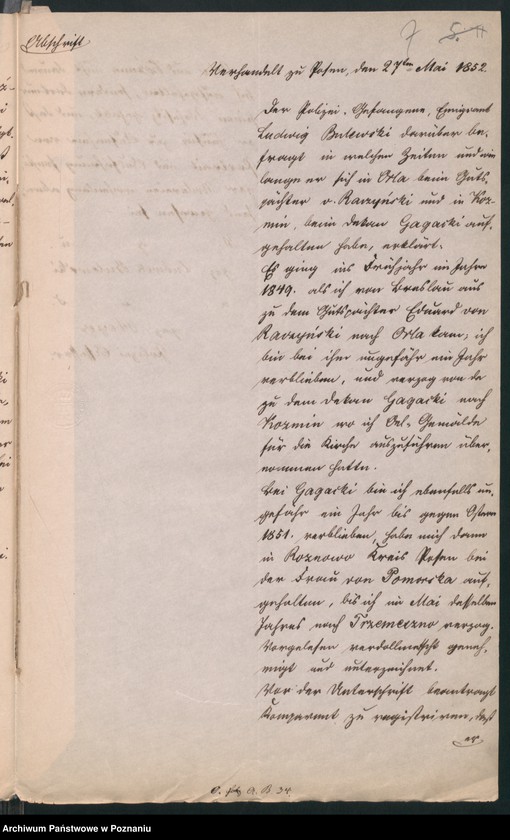 7 5. 11
Abschrift
Verhandelt zu Posen, den 27ten Mai 1852.
Der Polizei-Gefangene, Emigrant
Ludwig Bulewski darüber be-
fragt in welchen Zeiten und wie
lange er sich in Orla beim Guts-
pächter v. Raczyński und in Koz-
min, beim Dekan Gagacki auf-
gehalten habe, erklärt.
Es ging ins Frühjahr im Jahre
1849. als ich von Breslau aus
zu dem Gutspächter Eduard von
Raczyński nach Orla kam, ich
bin bei ihm ungefähr ein Jahr
verblieben, und verzog von da
zu dem Dekan Gagacki nach
Kozmin wo ich Oel-Gemälde
für die Kirche auszuführen über-
nommen hatte.
Bei Gagacki bin ich ebenfalls un-
gefähr ein Jahr bis gegen Ostern
1851. verblieben, habe mich dann
in Roznowo Kreis Posen bei
der Frau von Pomorska auf-
gehalten, bis ich im Mai desselben
Jahres nach Trzemeszno verzog.
Vorgelesen verdollmetscht geneh-
migt und unterzeichnet.
Vor der Unterschrift beantragt
Komparent zu registriren, daß
er
A. B 34.
Archiwum Państwowe w Poznaniu